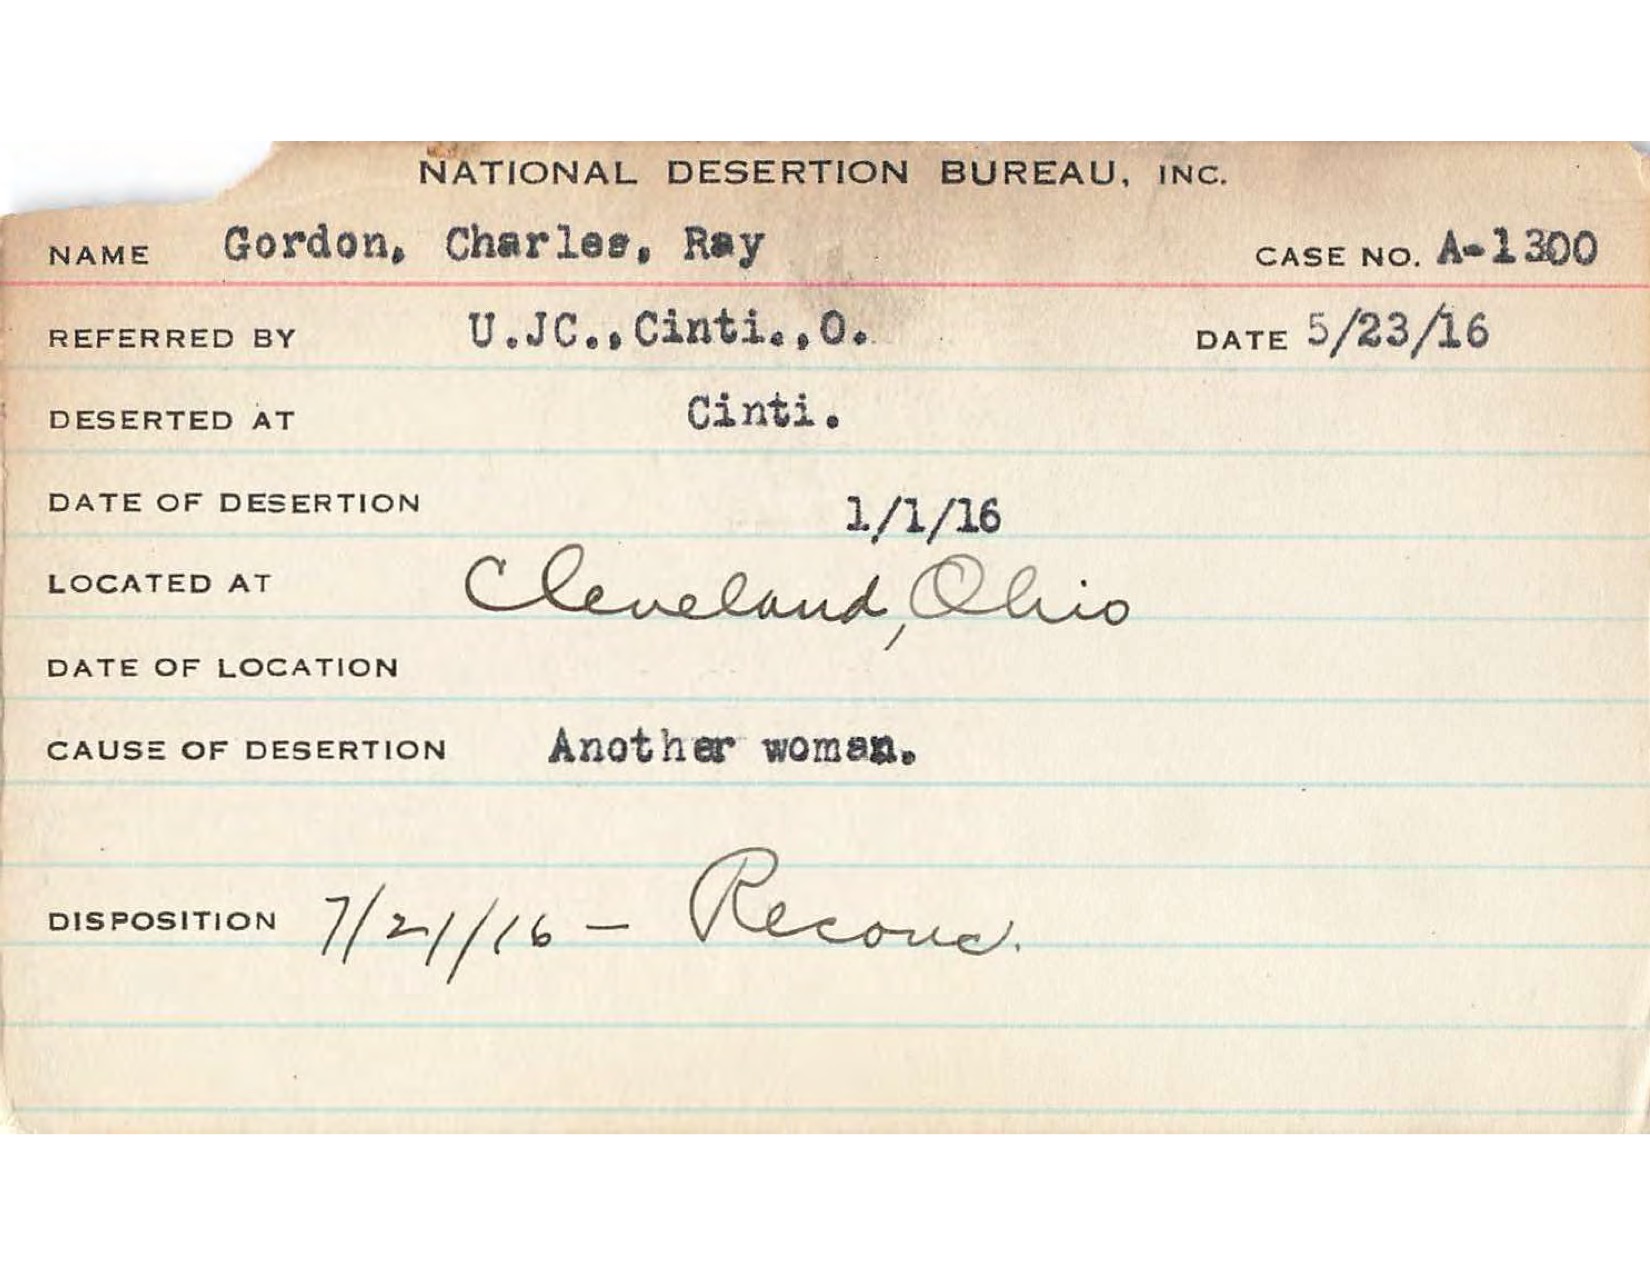 NATIONAL DESERTION BUREAU, INC.
NAME Gordon, Charles, Ray CASE NO. A-1300
REFERRED BY U.JC.,Cinti.,O. DATE 5/23/16
DESERTED AT Cinti.
DATE OF DESERTION 1/1/16
LOCATED AT Cleveland, Ohio
DATE OF LOCATION
CAUSE OF DESERTION Another woman.
DISPOSITION 7/21/16 – Reconc.